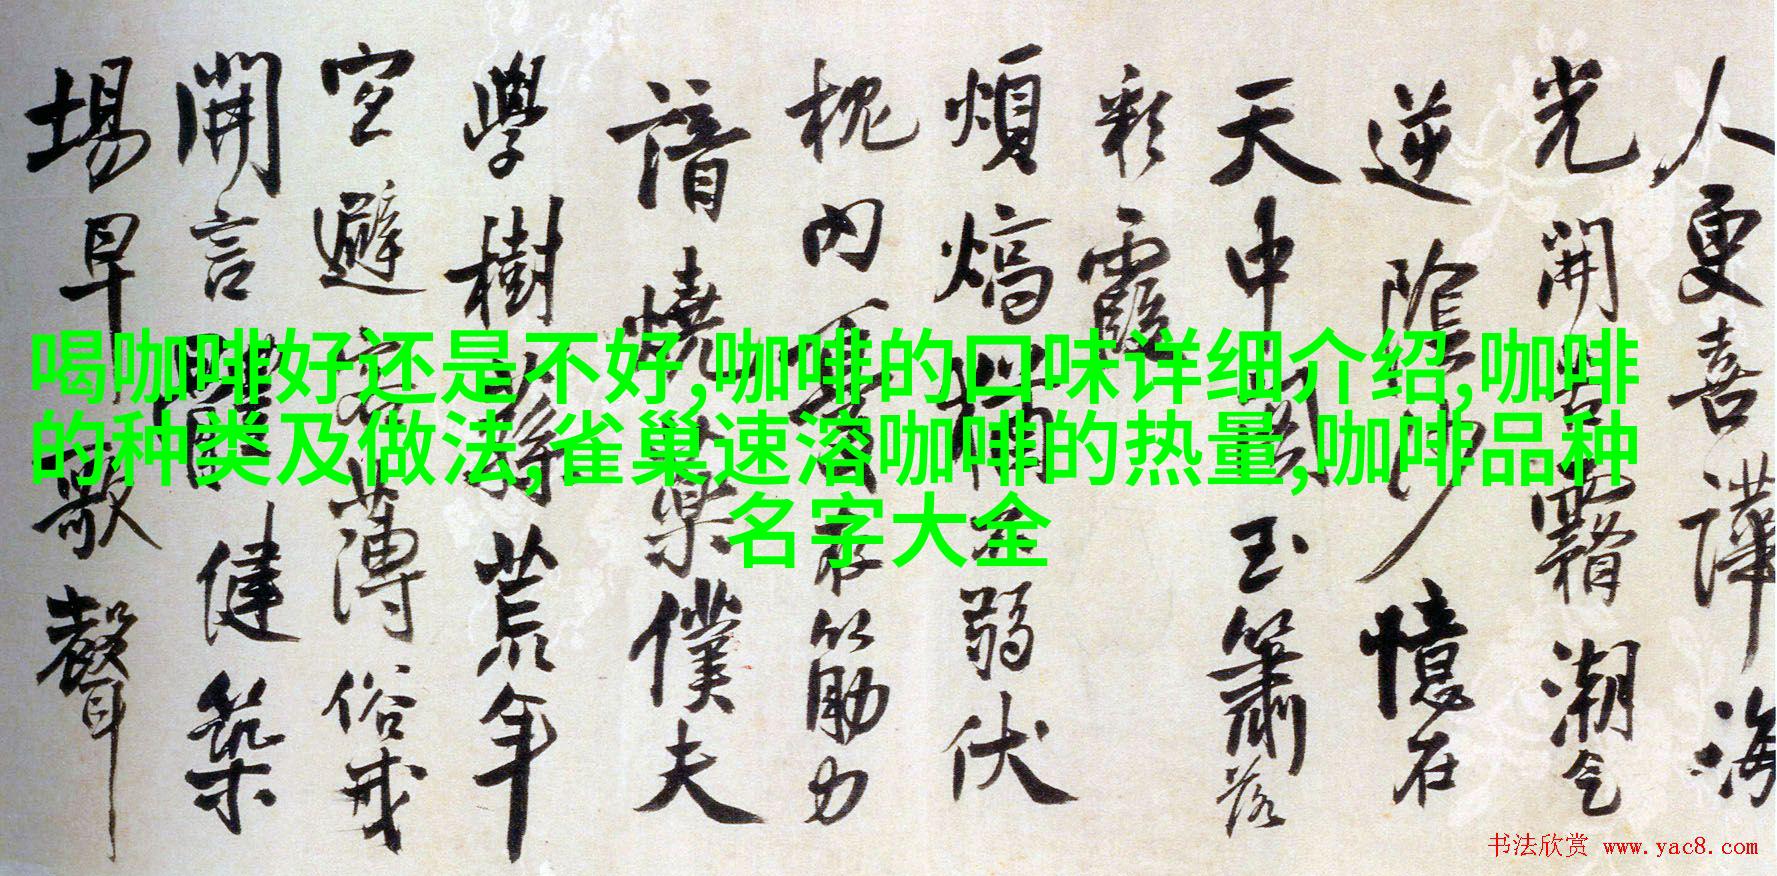 喝咖啡好还是不好,咖啡的口味详细介绍,咖啡
的种类及做法,雀巢速溶咖啡的热量,咖啡品种
名字大全
人更喜譁海
光開
霽潮
逆陰
憶在
天中
玉簫落
彩霞
煩熇
弱伏
枕内
筋力
諳燒
藥僕夫
學樹
荒年
空避
薄俗戒
開言
健築
場早
歌聲
书法欣赏 www.yac8.com